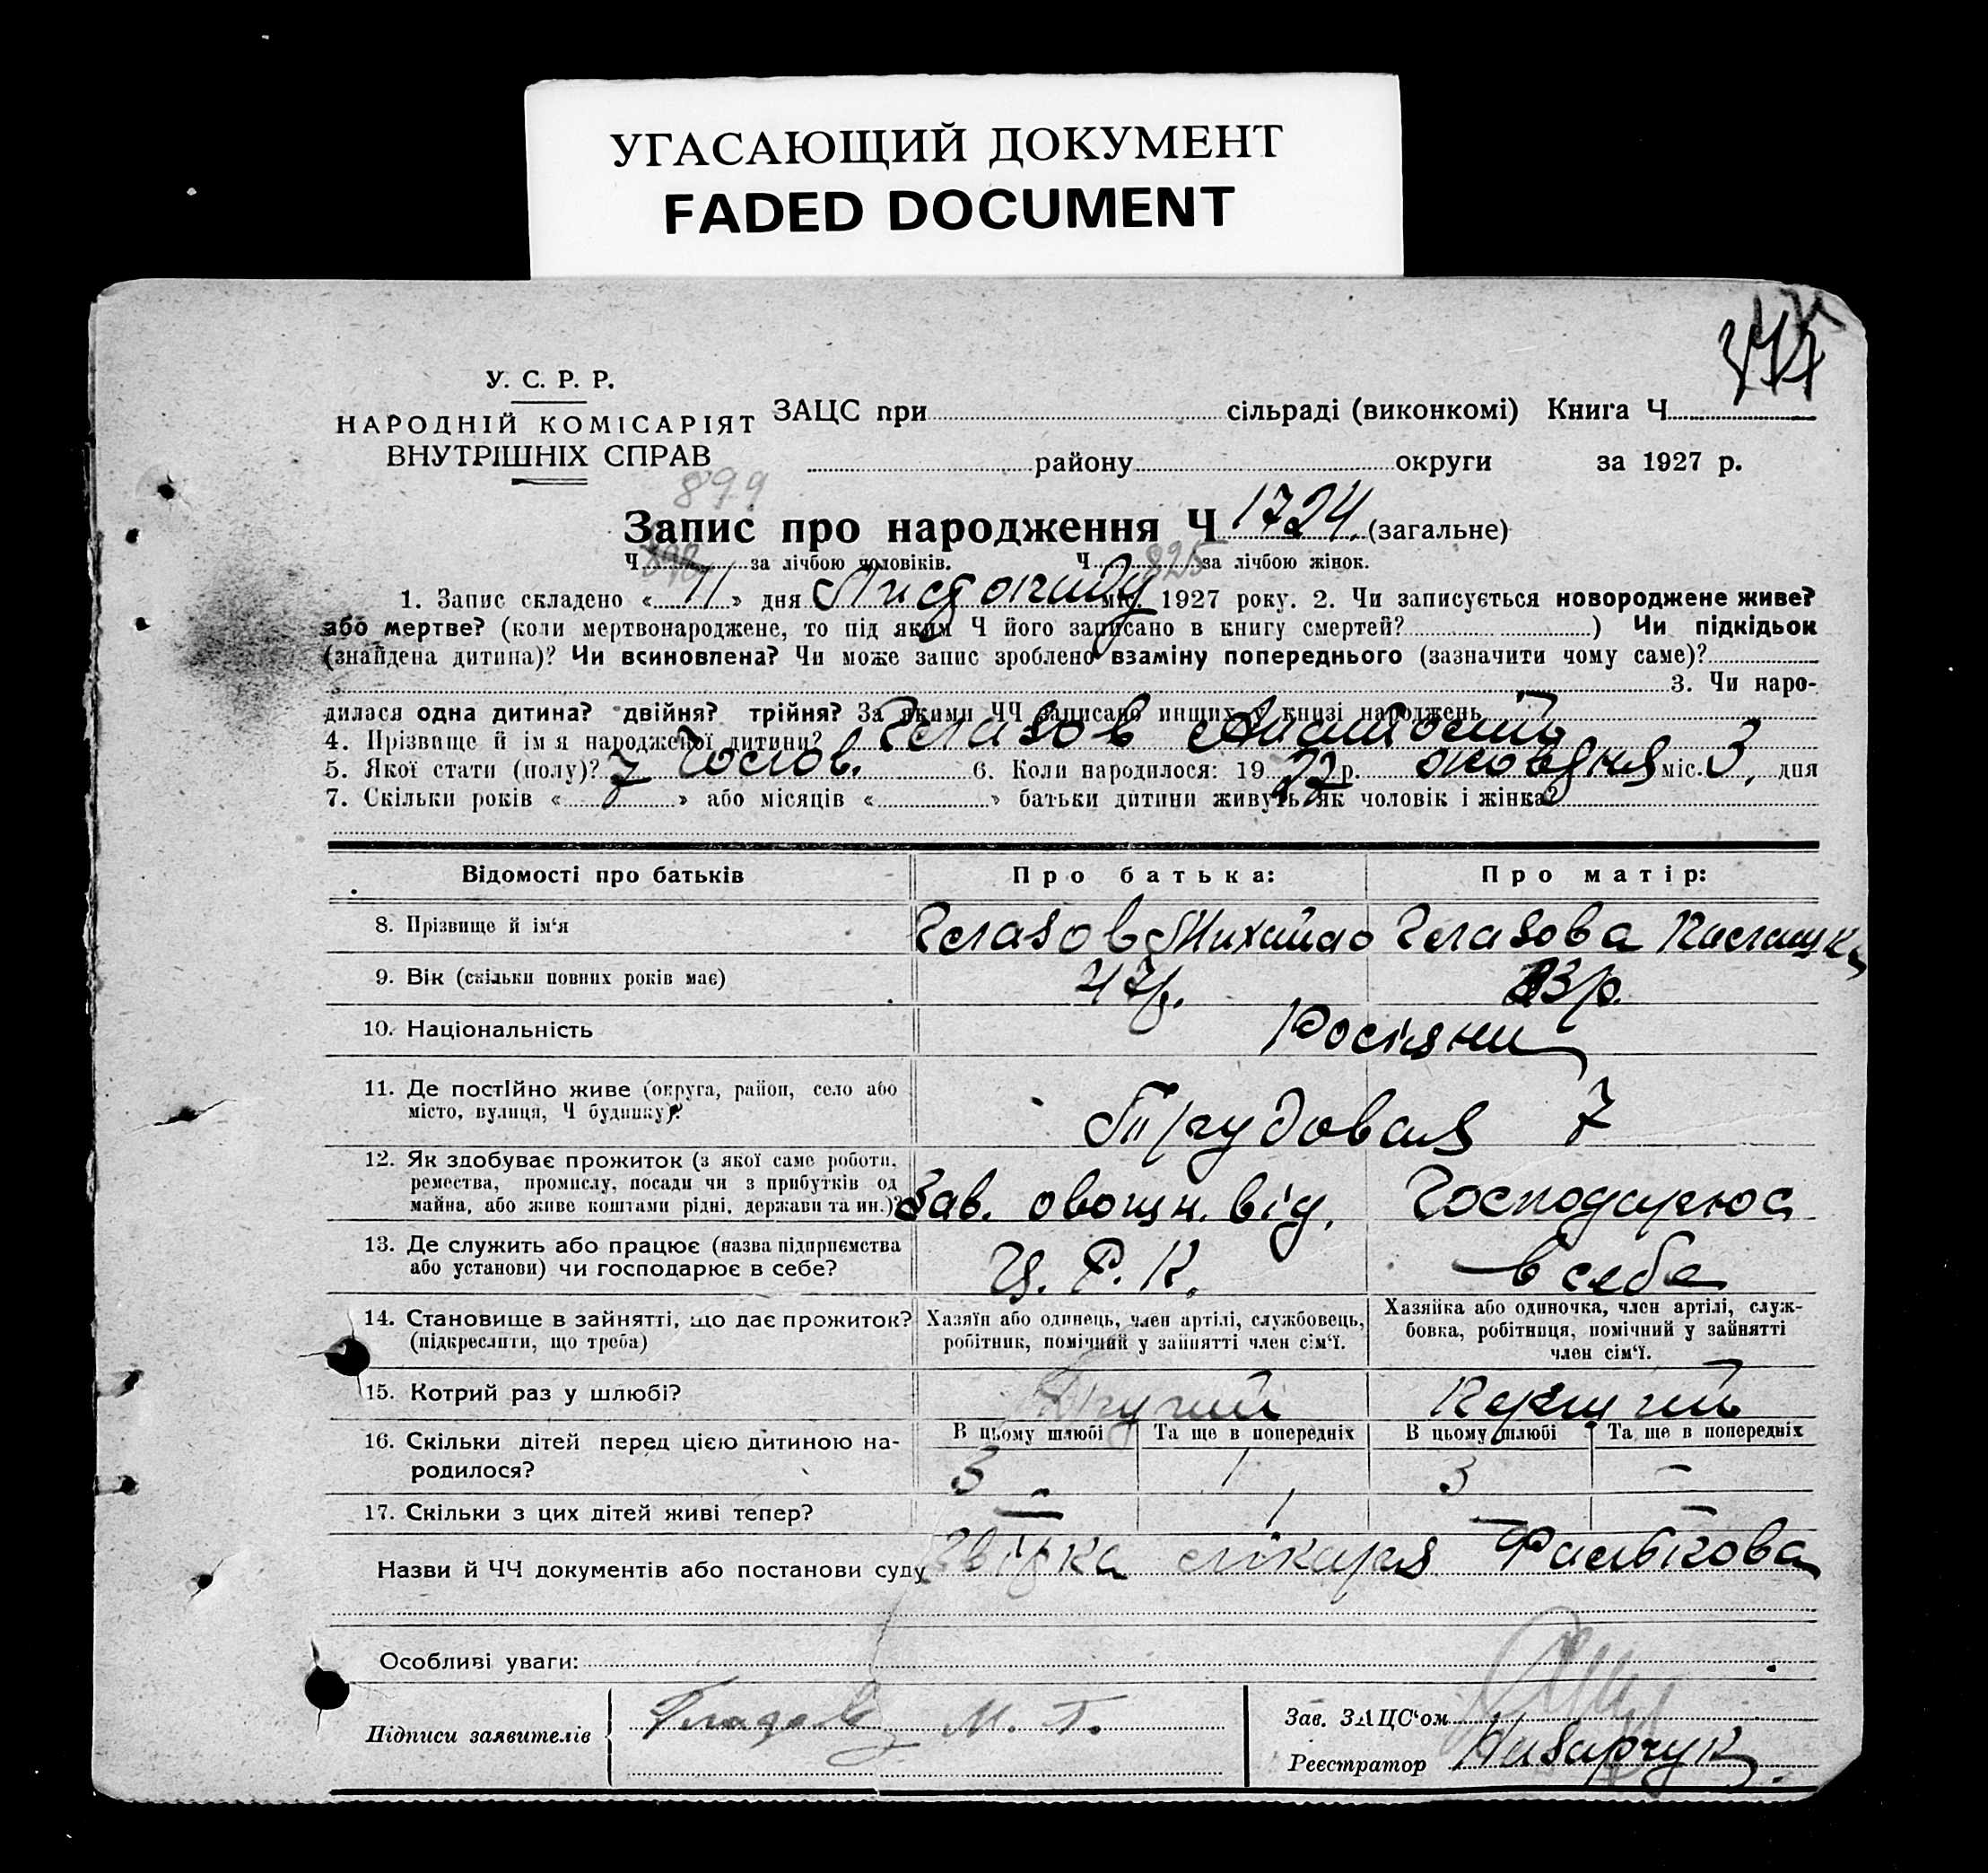 УГАСАЮЩИЙ ДОКУМЕНТ
FADED DOCUMENT
У. С. Р. Р.
НАРОДНІЙ КОМІСАРІЯТ
ВНУТРІШНІХ СПРАВ
ЗАЦС при сільраді (виконкомі) Книга Ч
району округи за 1927 р.
899
Запис про народження Ч 1724. (загальне)
Ч за лічбою чоловіків. Ч 825 за лічбою жінок.
1. Запис складено « 11 » дня Листопаду міс. 1927 року. 2. Чи записується новороджене живе?
або мертве? (коли мертвонароджене, то під яким Ч його записано в книгу смертей? ) Чи підкідьок
(знайдена дитина)? Чи всиновлена? Чи може запис зроблено взаміну попереднього (зазначити чому саме)?
3. Чи наро-
дилася одна дитина? двійня? трійня? За якими ЧЧ записано инших у книзі народжень
4. Прізвище й ім я народженої дитини? Глазов Анатолій
5. Якої стати (полу)? Чолов. 6. Коли народилося: 19 27 р. жовтня міс. 3. дня
7. Скільки років « 7 » або місяців « » батьки дитини живуть як чоловік і жінка?
Відомості про батьків Про батька: Про матір:
8. Прізвище й ім'я Глазов Михайло Глазова
9. Вік (скільки повних років має) 47 р. 33 р.
10. Національність Росіяни
11. Де постійно живе (округа, район, село або
місто, вулиця, Ч будинку)? Трудовая 7
12. Як здобуває прожиток (з якої саме роботи,
ремества, промислу, посади чи з прибутків од
майна, або живе коштами рідні, держави та ин.)? Зав. овощн. від. Господарює
13. Де служить або працює (назва підприємства
або установи) чи господарює в себе? Ц. Р. К. в себе
14. Становище в зайнятті, що дає прожиток?
(підкреслити, що треба)
Хазяїн або одинець, член артілі, службовець,
робітник, помічний у зайнятті член сім'ї.
Хазяйка або одиночка, член артілі, служ-
бовка, робітниця, помічний у зайнятті
член сім'ї.
15. Котрий раз у шлюбі? Другий Перший
В цьому шлюбі Та ще в попередніх В цьому шлюбі Та ще в попередніх
16. Скільки дітей перед цією дитиною на-
родилося? 3 1 3 –
17. Скільки з цих дітей живі тепер? – 1 – –
Назви й ЧЧ документів або постанови суду Звідка лікаря Фалькова
Особливі уваги:
Підписи заявителів Глазов М. Г.
Зав. ЗАЦС'ом
Реєстратор Назарчук.